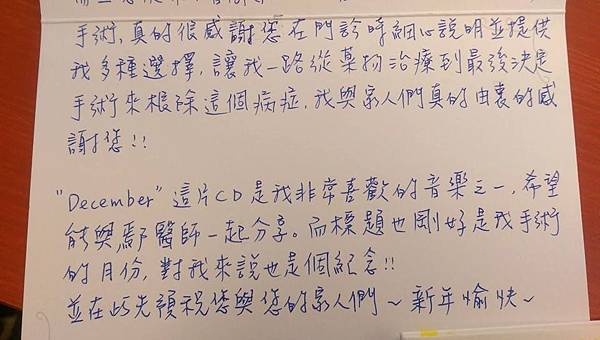 手術,真的很感謝您在門診時細心說明並提供
我多種選擇,讓我一路從藥物治療到最後決定
手術來根除這個病症,我與家人們真的由衷的感
謝您!!
"December"這片CD是我非常喜歡的音樂之一,希望
能與鄢醫師一起分享。而標題也剛好是我手術
的月份,對我來說也是個紀念!!
並在此先預祝您與您的家人們~新年愉快~